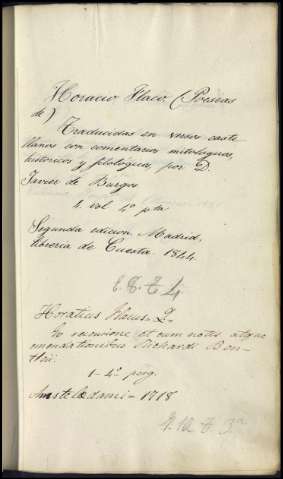 Horacio Flaco (Poesias
de)
Traducidas en versos caste
llanos con comentarios mitologicos,
historicos y filologicos por D.
Javier de Burgos
4 vol 4º pta
Segunda edicion Madrid,
libreria de Cuesta. 1844
Horatius Flacus Q.
Ex recensione et cum notis atque
mendationibus Richardi Ben-
tleii.
1-4º perg.
Amsteledami-1718